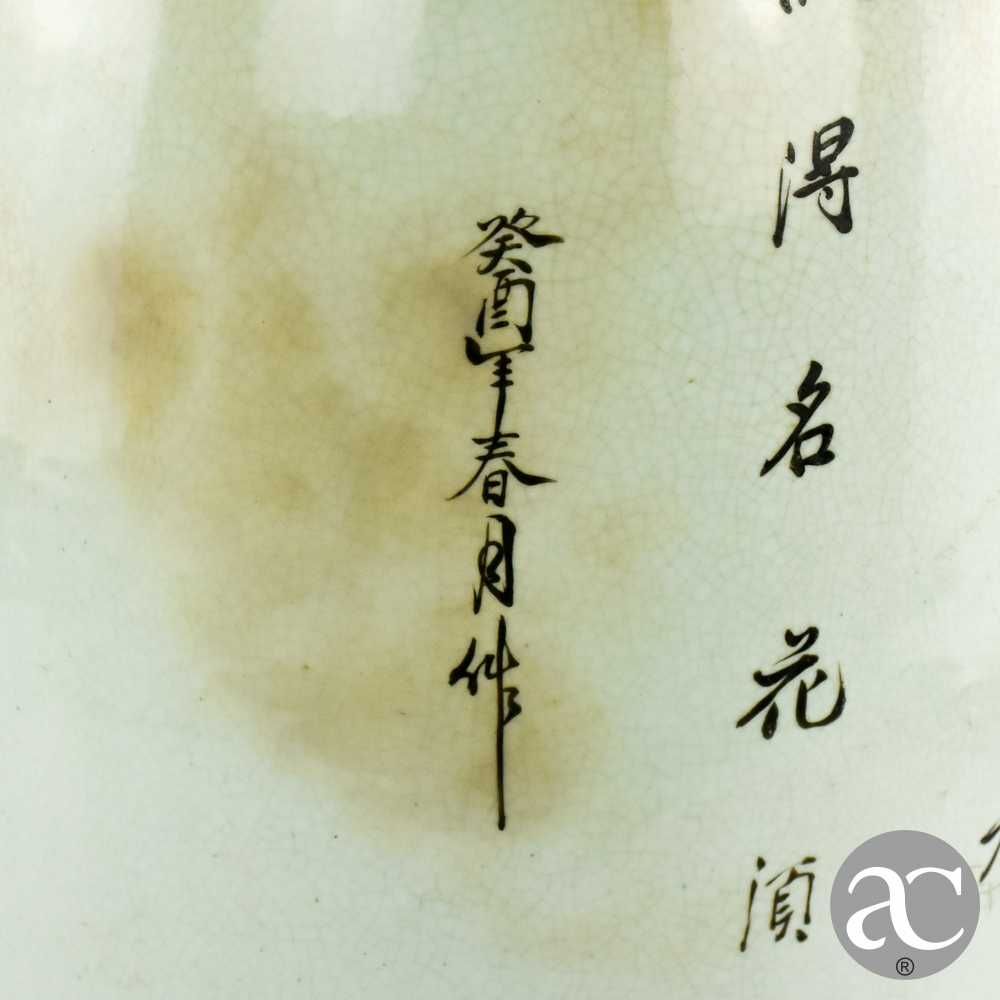 得名花須
癸酉年春月作
ac
®